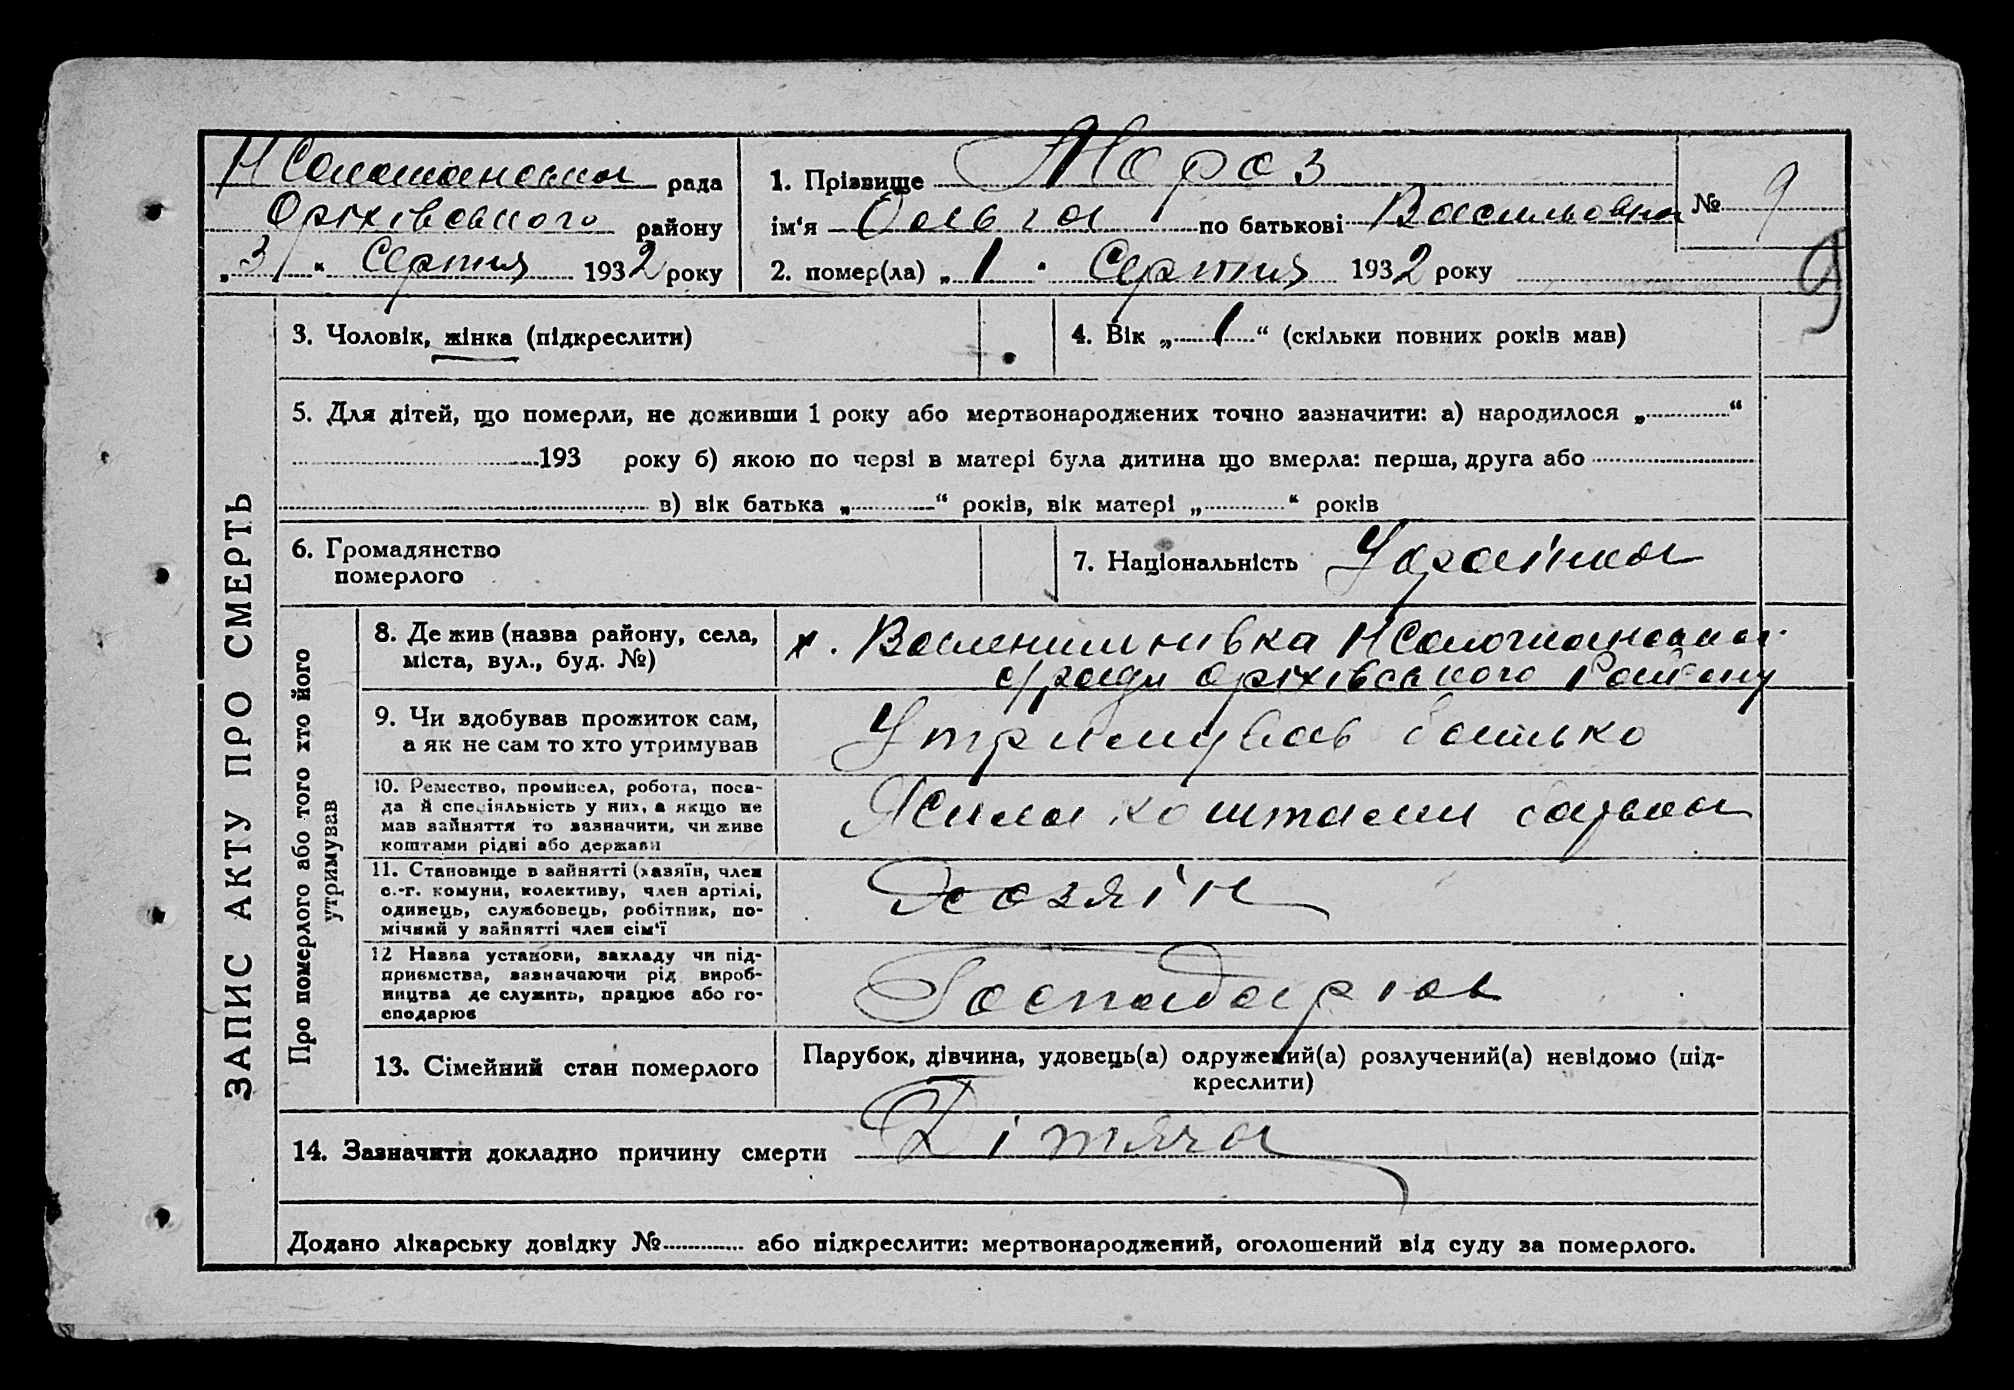 Н Соломанська рада
Оріхівського району
„ 3 “ Серпня 1932 року
1. Прізвище Мороз
ім‘я Ольга по батькові Васильовна
№ 9
2. помер(ла) „ 1 “ Серпня 1932 року
9
ЗАПИС АКТУ ПРО СМЕРТЬ
3. Чоловік, жінка (підкреслити)
4. Вік „ 1 “ (скільки повних років мав)
5. Для дітей, що померли, не доживши 1 року або мертвонароджених точно зазначити: а) народилося „ “
193 року б) якою по черзі в матері була дитина що вмерла: перша, друга або
в) вік батька „ “ років, вік матері „ “ років
6. Громадянство
померлого
7. Національність Українка
Про померлого або того хто його
утримував
8. Де жив (назва району, села,
міста, вул., буд. №)
х. Н
с/ради Оріхівського Району
9. Чи здобував прожиток сам,
а як не сам то хто утримував
Утримував батько
10. Ремество, промисел, робота, поса-
да й спеціяльність у них, а якщо не
мав зайняття то зазначити, чи живе
коштами рідні або держави
Жила коштами батька
11. Становище в зайнятті (хазяїн, член
с.-г. комуни, колективу, член артілі,
одинець, службовець, робітник, по-
мічний у зайнятті член сім‘ї
Хозяін
12 Назва установи, закладу чи під-
приємства, зазначаючи рід вироб-
ництва де служить, працює або го-
сподарює
Господарював
13. Сімейний стан померлого
Парубок, дівчина, удовець(а) одружений(а) розлучений(а) невідомо (під-
креслити)
14. Зазначити докладно причину смерти Дітяча
Додано лікарську довідку № або підкреслити: мертвонароджений, оголошений від суду за померлого.